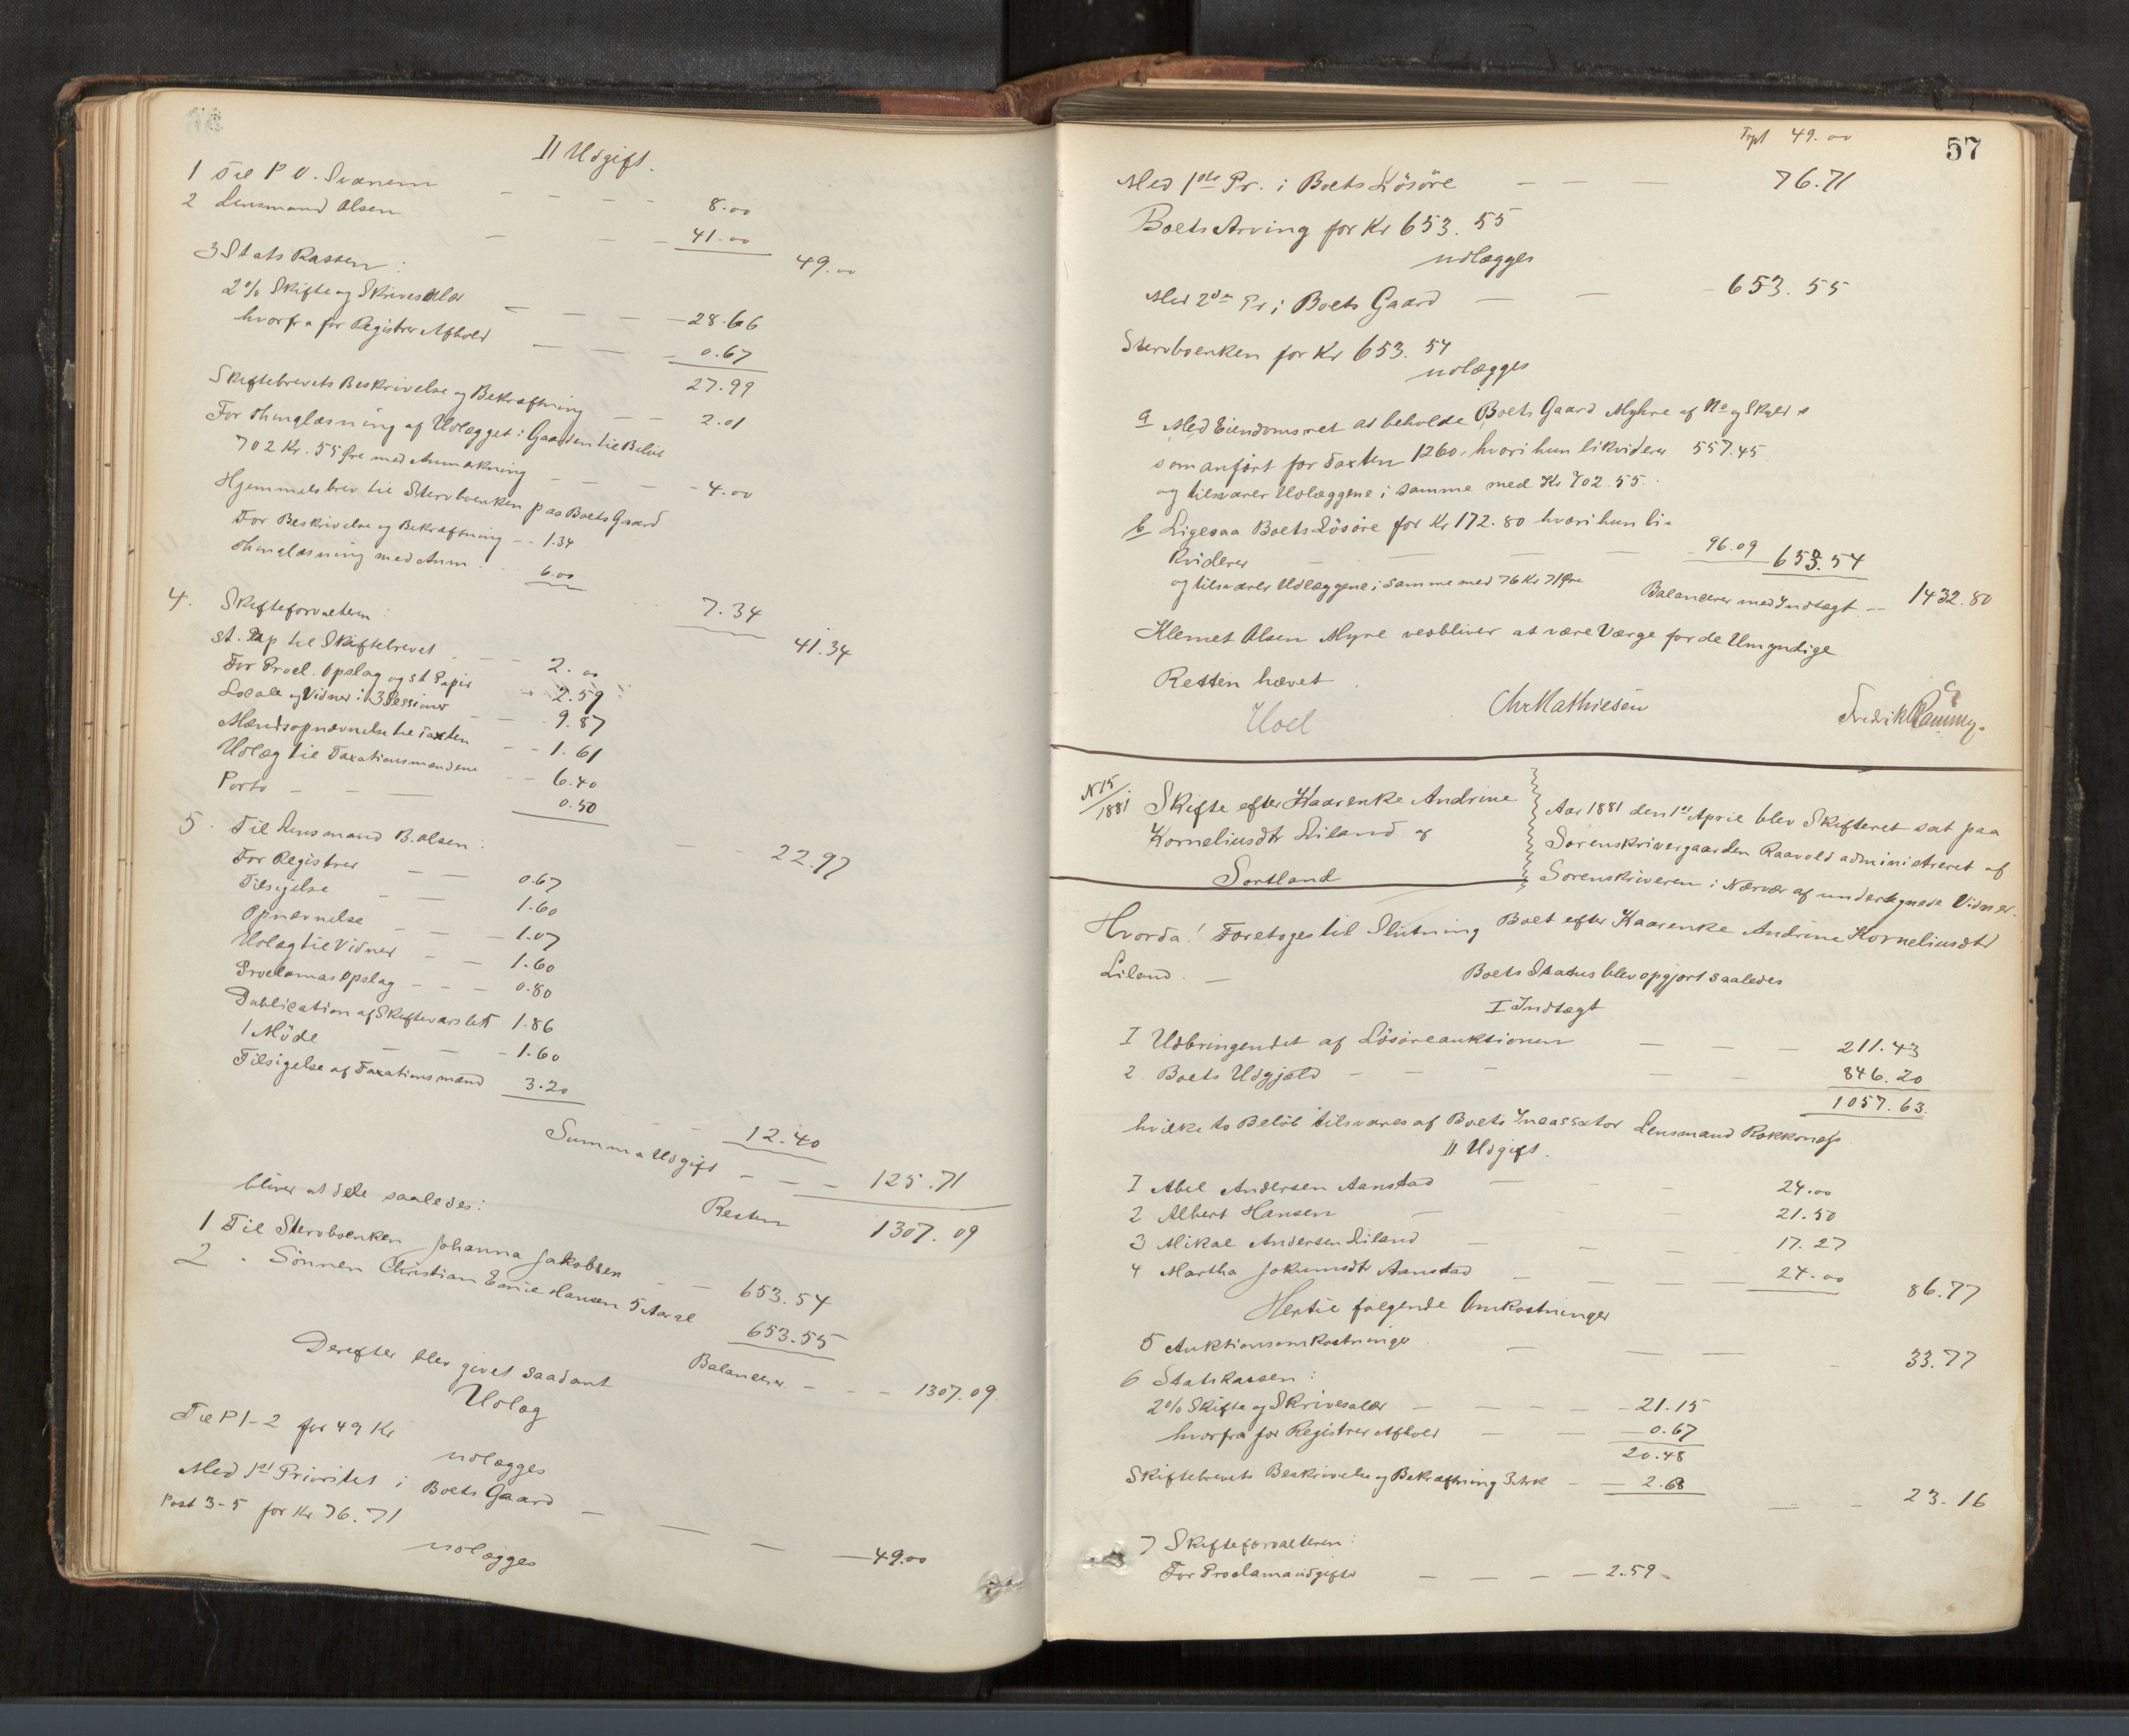 II Udgift.
1 Til P O. Svanem - - - 8.00
2 Lensmand Olsen - - - 41.00
49.00
3 Stats Kassen:
2% Skifte og Skrivesalær - - - 28.66
hvorfra for Registrer Afhold - - - 0.67
27.99
Skiftebrevets Beskrivelse og Bekræftning - - 2.01
For Thinglæsning af Udlægget i Gaarden til Beløb
702 Kr. 55 Øre med Anmærkning - - - 4.00
Hjemmelsbrev til Stervboenken paa Boets Gaard
For Beskrivelse og Bekræftning - - 1.34
Thinglæsning med Anm. 6.00
7.34
41.34
4. Skifteforvalteren:
st. Pap til Skiftebrevet - - - 2.00
For Procl. Opslag og st Papir - 2.59
Locale og Vidner i 3 Sessioner - - 9.87
Mændsopnævnelse til Taxten - - 1.61
Udlæg til Taxationsmændene - - 6.40
Porto - - - 0.50
22.97
5. Til Lensmand B. Olsen:
For Registrer - - 0.67
Tilsigelse - - 1.60
Opnævnelse - - 1.07
Udlæg til Vidner - - 1.60
Proclamas Opslag - - - 0.80
Publication af Skiftevarslet 1.86
1 Möde - - - 1.60
Tilsigelse af Taxationsmænd 3.20
- - 12.40
Summa Udgift - - - 125.71
Resten 1307.09
bliver at dele saaledes:
1 Til Stervboenken Johanna Jakobsen - - 653.54
2 - Sönnen Christian Emil Hansen 5 Aar al 653.55
Balancerer - - - 1307.09.
Derefter blev givet saadant
Udlæg
Til P 1-2 for 49 Kr
udlægges
Med 1st Prioritet i Boets Gaard - - - 49.00
Post 3-5 for Kr 76.71
udlægges
57
Trpt 49.00
Med 1ste Pr. i Boets Lösöre - - - 76.71
Boets Arving for Kr 653.55
udlægges
Med 2den Pr. i Boets Gaard - - - 653.55
Stervboenken for Kr 653.54
udlægges
a Med Eiendomsret at beholde Boets Gaard Myhre af No og Skyld
som anført for Taxten 1260, hvori hun likviderer 557.45
og tilsvarer Udlæggene i samme med Kr 702.55.
b Ligesaa Boets Lösöre for Kr 172.80 hvori hun li-
kviderer - - - 96.09 653.54
og tilsvarer Udlæggene i samme med 76 Kr 71 Øre
Balancerer med Indtægt - 1432.80
Klemet Olsen Myre vedbliver at være Værge for de Umyndige
Retten hævet.
Hoel Chr Mathiesen Fredrik
N 15/1881 Skifte efter Kaarenke Andrine
Korneliusdtr Liland af
Sortland
Aar 1881 den 1st April blev Skifteret sat paa
Sorenskrivergaarden Raavold administreret af
Sorenskriveren i Nærvær af undertegnede Vidner.
Hvorda! Foretoges til Slutning Boet efter Kaarenke Andrine Korneliusdtr
Liland. -
Boets Status blev opgjort saaledes
I Indtægt
I Udbringendet af Lösöreauktionen - - - 211.43
2 Boets Udgjæld - - - 846.20
1057.63.
hvilke to Beløb tilsvares af Boets Incassator Lensmand Rokkones.
II Udgift.
I Abel Andersen Aanstad - - - 24.00
2 Albert Hansen - - - 21.50
3 Mikal Andersen Liland - - - 17.27
4 Martha Jokumsdtr Aanstad - - - 24.00
86.77
Hertil følgende Omkostninger
5 Auktionsomkostninger - - - 33.77
6 Statskassen:
2% Skifte og Skrivesalær - - - 21.15
hvorfra for Registrer Afhold - - 0.67
20.48
Skiftebrevets Beskrivelse og Bekræftning 3 Ark - 2.68
- - 23.16
7 Skifteforvalteren:
For Proclamaudgifter - - - 2.59